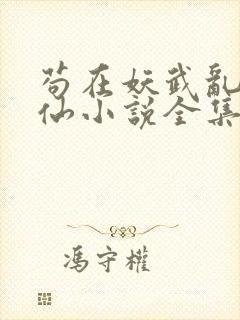 苟在妖武亂
仙小說全集
馮守權